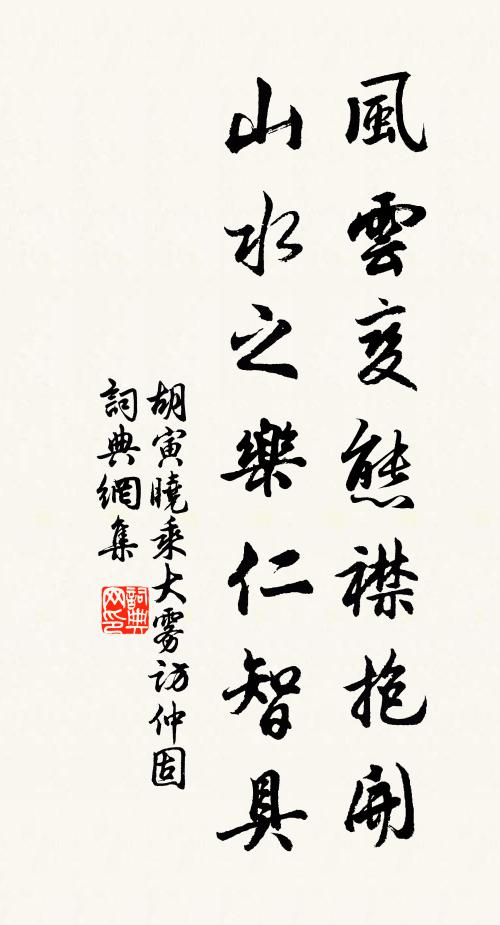 風雲变態襟抱開
山水之樂仁智具
胡寅曉乘大雾訪仲固
詞典網集
詞典网印